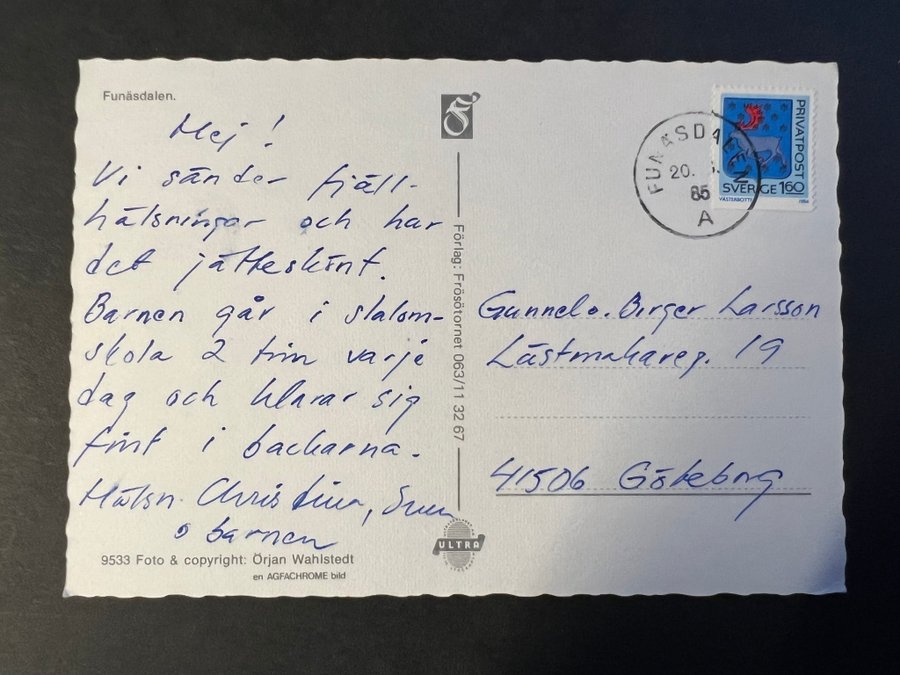 Funäsdalen.
Hej!
Vi sänder fjäll-
hälsningar och har
det jätteskönt.
Barnen går i slalom-
skola 2 tim varje
dag och klarar sig
fint i backarna.
Hälsn. Christina,
o barnen
9533 Foto & copyright: Örjan Wahlstedt
en AGFACHROME bild
Förlag: Frösötornet 063/11 32 67
ULTRA
FUNÄSDALEN
20.
85
A
PRIVATPOST
SVERIGE 160
VÄSTERBOTTEN
1984
Gunnel o. Birger Larsson
Låstmakareg. 19
41506 Göteborg